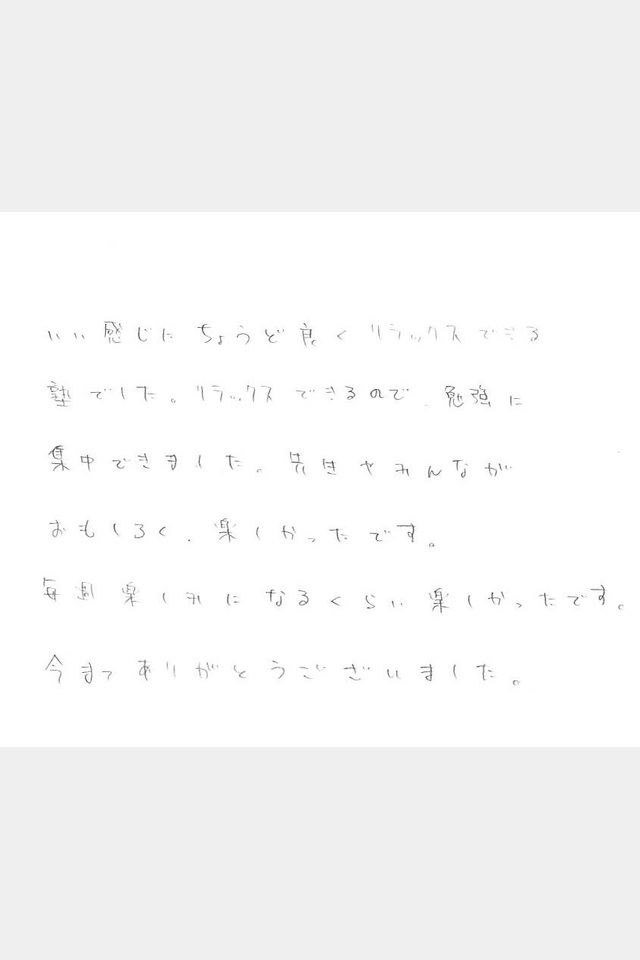 いい感じにちょうど良くリラックスできる
塾でした。リラックスできるので、勉強に
集中できました。先生やみんなが
おもしろく、楽しかったです。
毎週楽しみになるくらい楽しかったです。
今までありがとうございました。